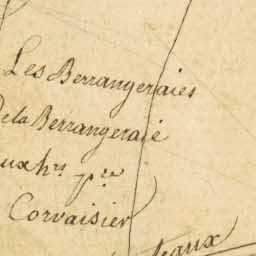 Les Berrangeraies
de la Berrangeraie
aux hrs pre
Corvaisier